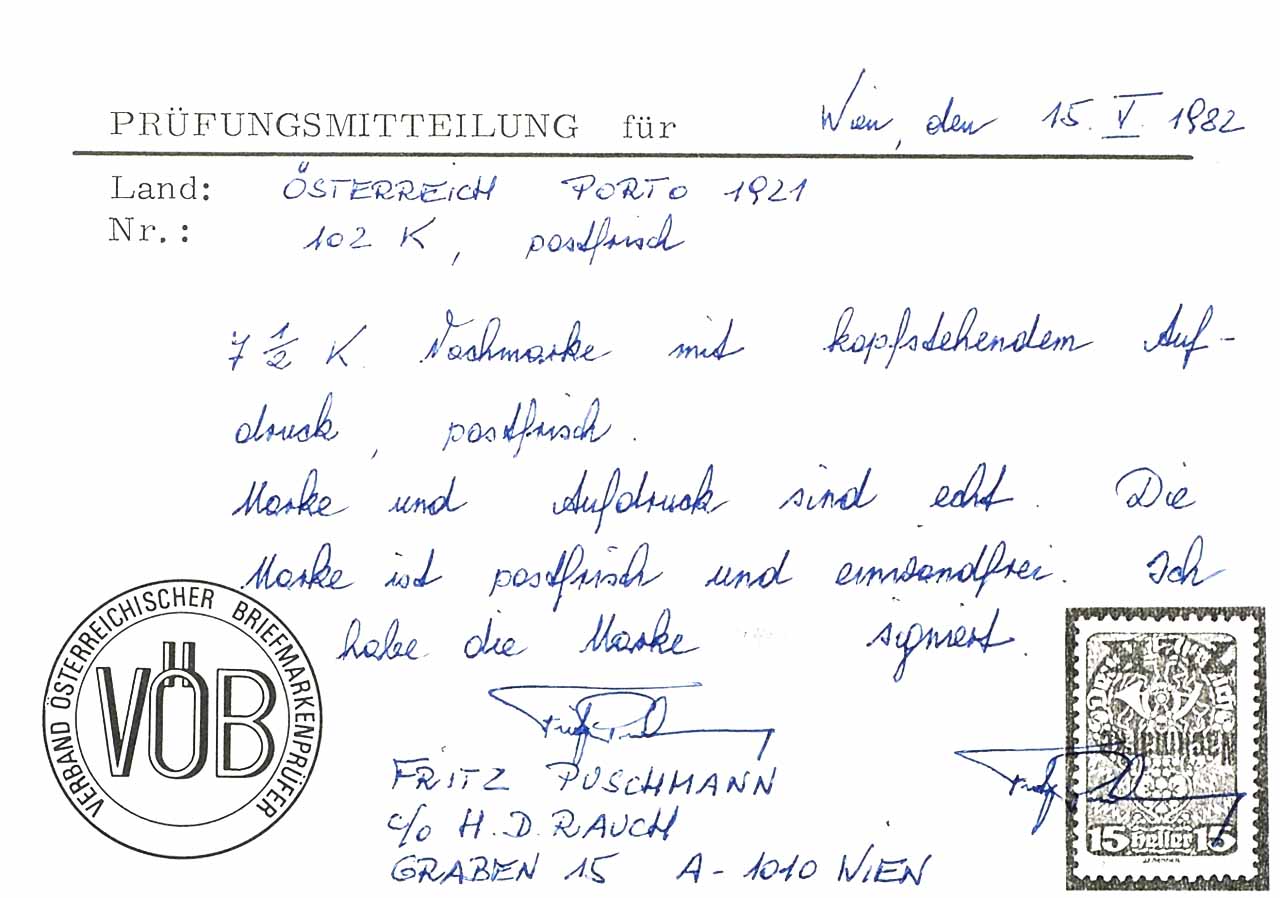 PRÜFUNGSMITTEILUNG für Wien, den 15. V. 1982
Land: ÖSTERREICH PORTO 1921
Nr.: 102 K, postfrisch
7 1/2 K Nachmarke mit kopfstehendem Auf-
druck, postfrisch.
Marke und Aufdruck sind echt. Die
Marke ist postfrisch und einwandfrei. Ich
habe die Marke signiert.
FRITZ PUSCHMANN
c/o H. D. RAUCH
GRABEN 15 A-1010 WIEN
VERBAND ÖSTERREICHISCHER BRIEFMARKENPRÜFER
VÖB
Nachmarke
15 Heller 15